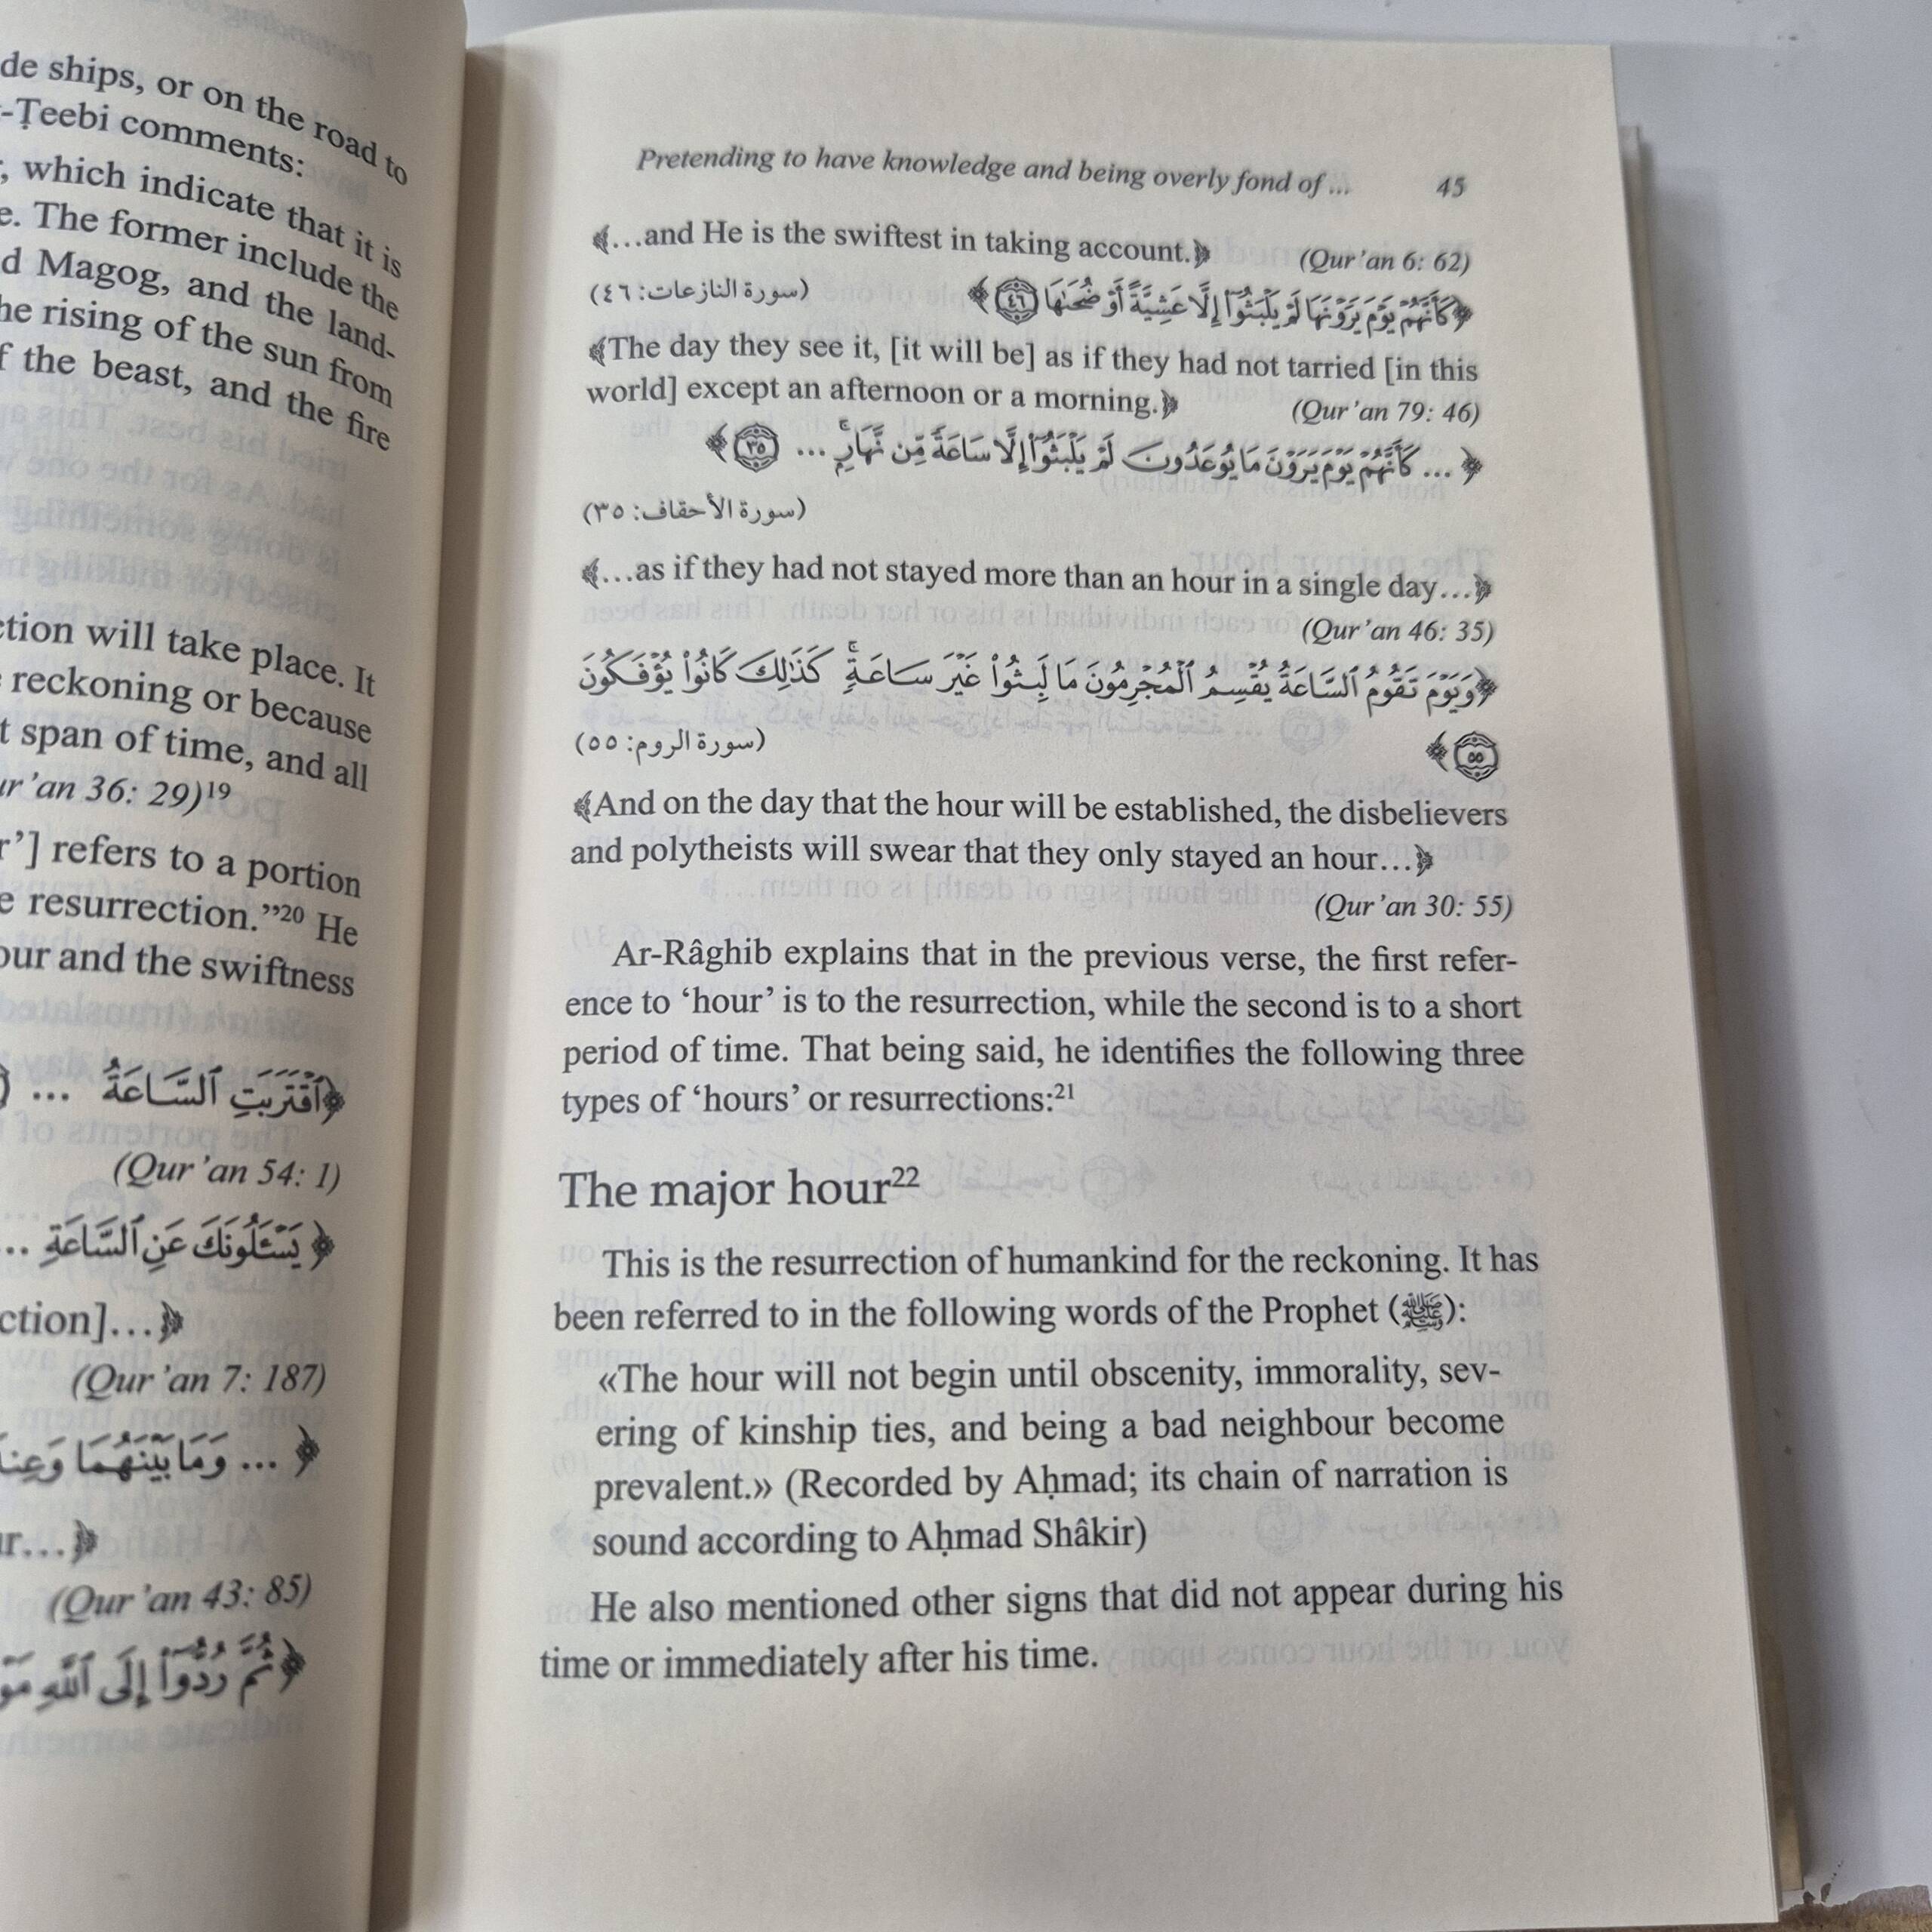 de ships, or on the road to
-Ṭeebi comments:
, which indicate that it is
e. The former include the
d Magog, and the land-
he rising of the sun from
f the beast, and the fire
ction will take place. It
reckoning or because
t span of time, and all
ur’an 36: 29)19
r’] refers to a portion
e resurrection.”20 He
our and the swiftness
﴿ٱقۡتَرَبَتِ ٱلسَّاعَةُ ...
(Qur’an 54: 1)
﴿يَسۡـَٔلُونَكَ عَنِ ٱلسَّاعَةِ ...
ction]...﴾
(Qur’an 7: 187)
﴿... وَمَا بَيۡنَهُمَا
ur...﴾
(Qur’an 43: 85)
﴿ثُمَّ رُدُّوٓاْ إِلَى ٱللَّهِ
Pretending to have knowledge and being overly fond of ... 45
﴾...and He is the swiftest in taking account.﴿ (Qur’an 6: 62)
﴿كَأَنَّهُمۡ يَوۡمَ يَرَوۡنَهَا لَمۡ يَلۡبَثُوٓاْ إِلَّا عَشِيَّةً أَوۡ ضُحَىٰهَا ٤٦﴾ (سورة النازعات: ٤٦)
﴾The day they see it, [it will be] as if they had not tarried [in this
world] except an afternoon or a morning.﴿ (Qur’an 79: 46)
﴿... كَأَنَّهُمۡ يَوۡمَ يَرَوۡنَ مَا يُوعَدُونَ لَمۡ يَلۡبَثُوٓاْ إِلَّا سَاعَةٗ مِّن نَّهَارِۭۚ ... ٣٥﴾
(سورة الأحقاف: ٣٥)
﴾...as if they had not stayed more than an hour in a single day...﴿
(Qur’an 46: 35)
﴿وَيَوۡمَ تَقُومُ ٱلسَّاعَةُ يُقۡسِمُ ٱلۡمُجۡرِمُونَ مَا لَبِثُواْ غَيۡرَ سَاعَةٖۚ كَذَٰلِكَ كَانُواْ يُؤۡفَكُونَ
٥٥﴾ (سورة الروم: ٥٥)
﴾And on the day that the hour will be established, the disbelievers
and polytheists will swear that they only stayed an hour...﴿
(Qur’an 30: 55)
Ar-Râghib explains that in the previous verse, the first refer-
ence to ‘hour’ is to the resurrection, while the second is to a short
period of time. That being said, he identifies the following three
types of ‘hours’ or resurrections:21
The major hour22
This is the resurrection of humankind for the reckoning. It has
been referred to in the following words of the Prophet (ﷺ):
«The hour will not begin until obscenity, immorality, sev-
ering of kinship ties, and being a bad neighbour become
prevalent.» (Recorded by Aḥmad; its chain of narration is
sound according to Aḥmad Shâkir)
He also mentioned other signs that did not appear during his
time or immediately after his time.